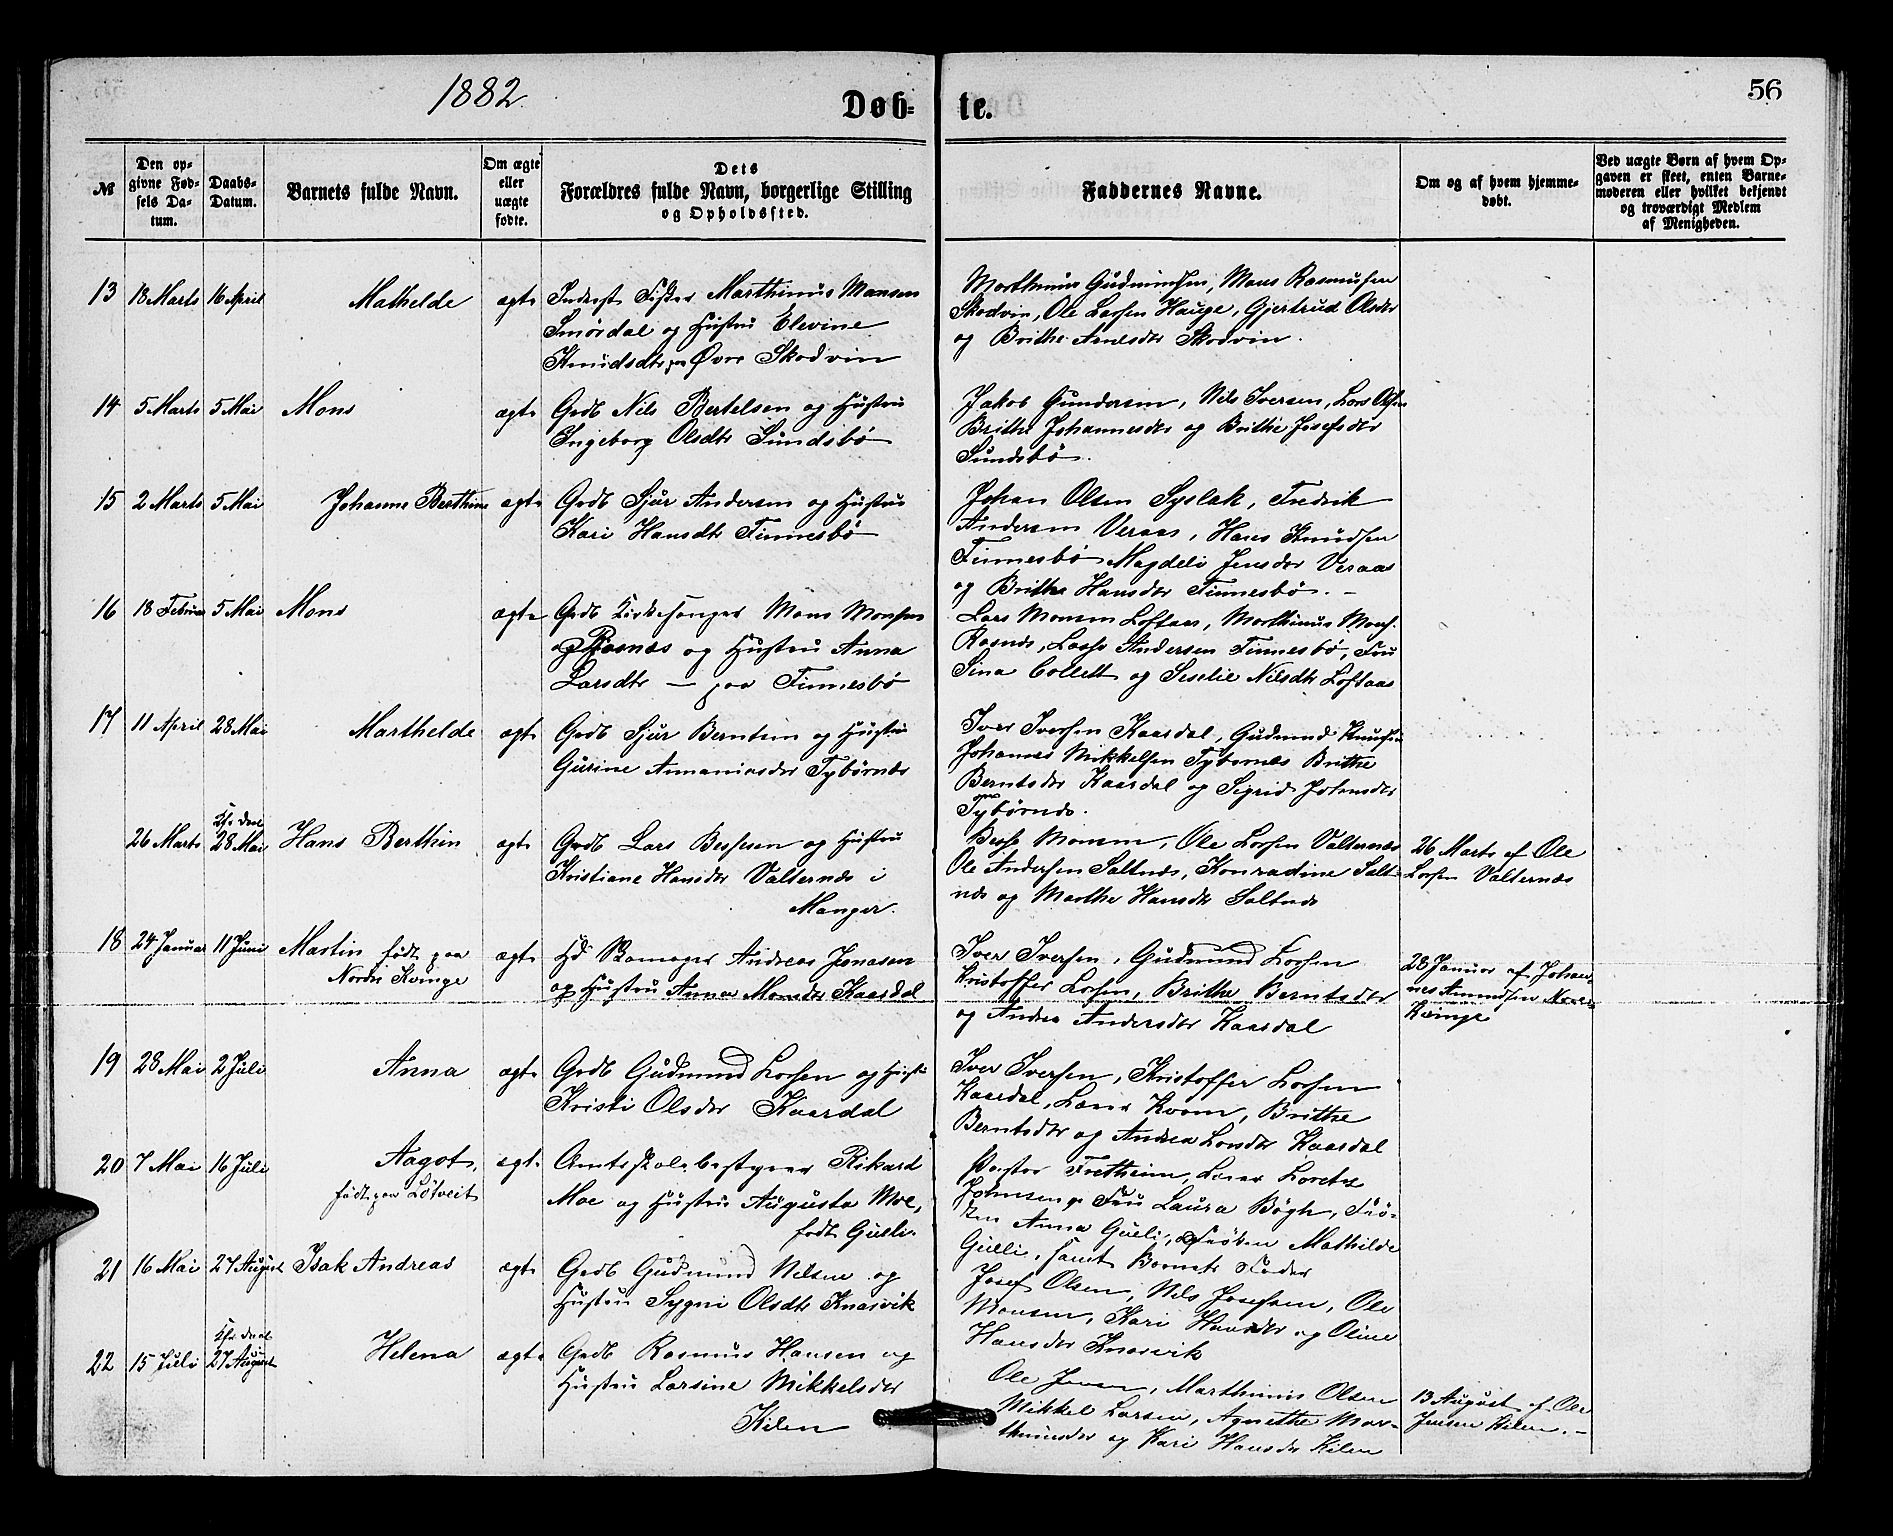 1882
Døb- te.
56
№
Den opgivne Fødsels Datum.
Daabs-Datum.
Barnets fulde Navn.
Om ægte eller uægte fødte.
Dets
Forældres fulde Navn, borgerlige Stilling
og Opholdssted.
Faddernes Navne.
Om og af hvem hjemmedøbt.
Ved uægte Børn af hvem Opgaven er skeet, enten Barnemoderen eller hvilket bekjendt og troværdigt Medlem af Menigheden.
13 18 Marts 16 April Mathelde ægte Inderst Fisker Marthinus Monsen
Smördal og Hustru Elevine
Knudsdtr paa Øvre Skodvin
Marthinus Gudmundsen, Mons Rasmusen
Skodvin, Ole Larsen Hauge, Gjertrud Olsdtr
og Brithe Arnesdtr Skodvin.
14 5 Marts 5 Mai Mons ægte Grdb Nils Bertelsen og Hustru
Ingeborg Olsdtr Sundsbö
Jakob Gundersen, Nils Iversen, Lars Olsen
Brithe Johannesdtr og Brithe Josefsdtr
Sundsbö.
15 2 Marts 5 Mai Johanne Berthine ægte Grdb Sjur Andersen og Hustru
Kari Hansdtr Finnesbö
Johan Olsen Syslak, Fredrik
Andersen Veraas, Hans Knudsen
Finnesbö Magdeli Jensdtr Veraas
og Brithe Hansdtr Finnesbö. -
16 18 Februar 5 Mai Mons ægte Grdb Kirkesanger Mons Monsen
Rosnæs og Hustru Anna
Larsdtr - paa Finnesbö
Lars Monsen Loftaas, Morthinus Mons.
Rosnes, Lasse Andersen Finnesbö, Fru
Sina Collett og Seselie Nilsdtr Loftaas
17 11 April 28 Mai Marthelde ægte Grdb Sjur Berntsen og Hustru
Gurine Annaniasdtr Tybörnæs
Iver Iversen Kaardal, Gudmund Knudsen
Johannes Mikkelsen Tybornæs Brithe
Berntsdtr Kaardal og Sigrid Johnsdtr
Tybörnæs.
26 Marts 28 Mai Hans Berthin ægte Grdb Lars Bessesen og Hustru
Kristiane Hansdtr Valternæs i
Manger.
Besse Monsen, Ole Larsen Valternæs
Ole Andersen Saltnæs, Konradine Saltnæs og Marthe Hansdtr Saltnæs
26 Marts af Ole
Larsen Valternæs
18 24 Januar 11 Juni Martin født paa
Nordre Kvinge
ægte Andreas Jonasen
og Hustru Anna Monsdtr Kaardal
Iver Iversen, Gudmund Larsen
Kristoffer Larsen, Brithe Berntsdtr
og Andrea Andersdtr Kaardal
28 Januar af Johannes Amundsen
Kvinge
19 28 Mai 2 Juli Anna ægte Grdb Gudmund Larsen og Hustru
Kristi Olsdtr Kaardal
Iver Iversen, Kristoffer Larsen
Kaardal, Lærer Kvam, Brithe
Berntsdtr og Andrea Kaardal
20 7 Mai 16 Juli Aagot,
født paa Lötveit
ægte Amtsskolebestyrer Rikard
Moe og Hustru Augusta Moe,
født Gulli.
Pastor Fretheim, Lærer
Johnsen, Fru Laura Bögh, Fröken Anna Gulli, Fröken Mathilde
Gulli, samt Barnets Fader
21 16 Mai 27 August Isak Andreas ægte Grdb Gudmund Nilsen og
Hustru Sygni Olsdtr Knarvik
Josef Olsen, Nils Josefsen, Ole
Monsen, Kari Hansdtr og Oline
Hansdtr Knarvik
22 15 Juli 27 August Helena ægte Grdb Rasmus Hansen og
Hustru Larsine Mikkelsdtr
Kilen
Ole Jensen, Marthinus Olsen
Mikkel Larsen, Agnethe Marthinusdtr og Kari Hansdtr Kilen
13 August af Ole
Jensen Kilen. -